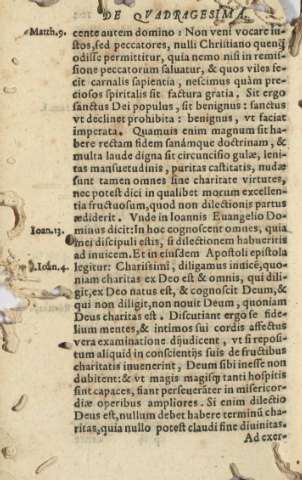 DE QVADRAGESIMA.
Matth.9. cente autem domino: Non veni vocare iu-
stos, sed peccatores, nulli Christiano quenq̃
odisse permittitur, quia nemo nisi in remis-
sione peccatorum saluatur, & quos viles fe-
cit carnalis sapientia, nescimus quàm pre-
ciosos spiritalis sit factura gratia. Sit ergo
sanctus Dei populus, sit benignus: sanctus
vt declinet prohibita: benignus, vt faciat
imperata. Quamuis enim magnum sit ha-
bere rectam fidem sanámque doctrinam, &
multa laude digna sit circuncisio gulæ, leni-
tas mansuetudinis, puritas castitatis, nudæ
sunt tamen omnes sine charitate virtutes,
nec potest dici in qualibet morum excellen-
tia fructuosum, quod non dilectionis partus
ædiderit. Vnde in Ioannis Euangelio Do-
Ioan.13. minus dicit: In hoc cognoscent omnes, quia
mei discipuli estis, si dilectionem habueritis
ad inuicem. Et in eiusdem Apostoli epistola
1.Ioãn.4. legitur: Charissimi, diligamus inuicẽ, quo-
niam charitas ex Deo est & omnis, qui dili-
git, ex Deo natus est, & cognoscit Deum, &
qui non diligit, non nouit Deum, quoniam
Deus charitas est. Discutiant ergo se fide-
lium mentes, & intimos sui cordis affectus
vera examinatione dijudicent, vt si reposi-
tum aliquid in conscientijs suis de fructibus
charitatis inuenerint, Deum sibi inesse non
dubitent: & vt magis magisq; tanti hospitis
sint capaces, fiant perseuerãter in misericor-
diæ operibus ampliores. Si enim dilectio
Deus est, nullum debet habere terminũ cha-
ritas, quia nullo potest claudi fine diuinitas.
Ad exer-